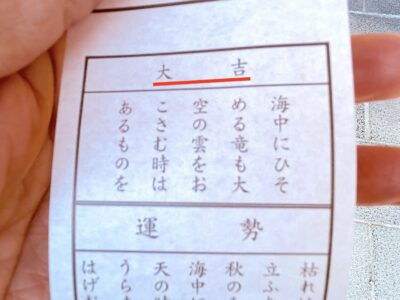 大吉
海中にひそ
める竜も大
空の雲をお
こさむ時は
あるものを
運勢
枯れ
立ふ
秋の
海中に
天の
うら
はげ